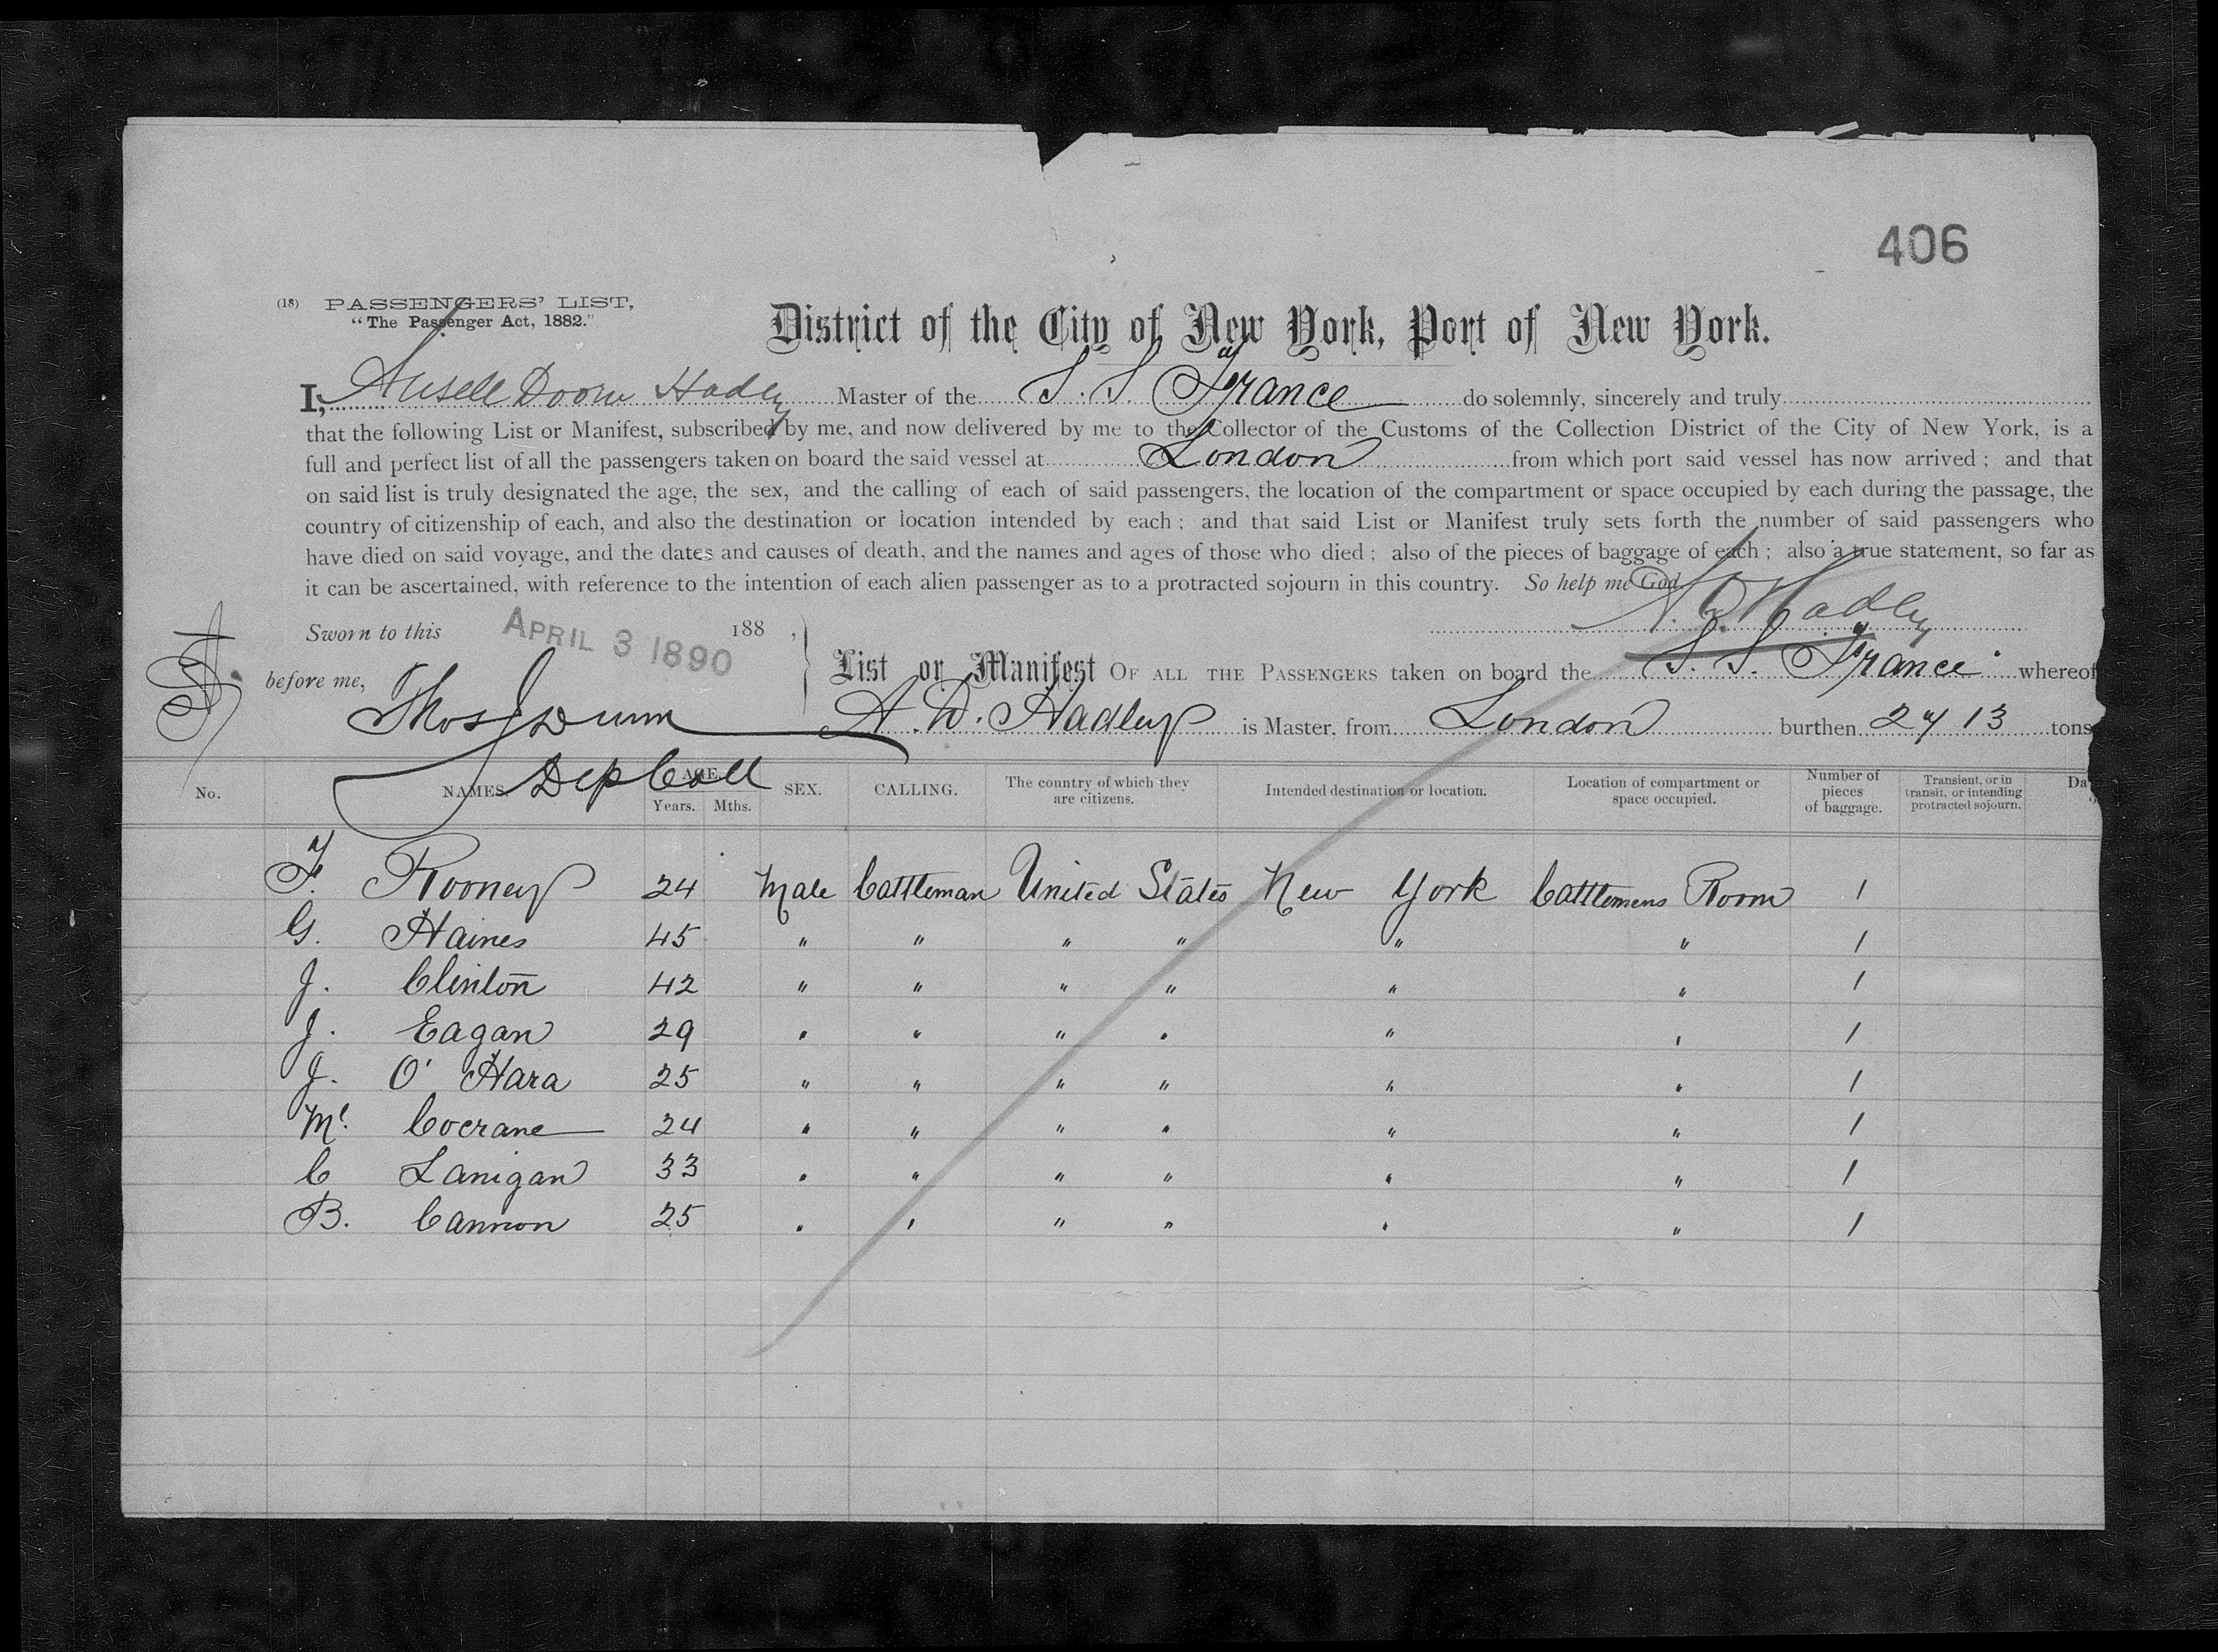 406
(18) PASSENGERS' LIST,
"The Passenger Act, 1882."
District of the City of New York, Port of New York.
I, Ansell Doom Hadley Master of the S. S. France do solemnly, sincerely and truly
that the following List or Manifest, subscribed by me, and now delivered by me to the Collector of the Customs of the Collection District of the City of New York, is a
full and perfect list of all the passengers taken on board the said vessel at London from which port said vessel has now arrived; and that
on said list is truly designated the age, the sex, and the calling of each of said passengers, the location of the compartment or space occupied by each during the passage, the
country of citizenship of each, and also the destination or location intended by each; and that said List or Manifest truly sets forth the number of said passengers who
have died on said voyage, and the dates and causes of death, and the names and ages of those who died; also of the pieces of baggage of each; also a true statement, so far as
it can be ascertained, with reference to the intention of each alien passenger as to a protracted sojourn in this country. So help me God
A. D. Hadley
Sworn to this APRIL 3 1890 188 ,
before me,
Thos J Dunn
Dep Coll
List or Manifest OF ALL THE PASSENGERS taken on board the S. S. France whereof
A. D. Hadley is Master, from London burthen 2713 tons
No. NAMES. AGE. Years. Mths. SEX. CALLING. The country of which they are citizens. Intended destination or location. Location of compartment or space occupied. Number of pieces of baggage. Transient, or in transit, or intending protracted sojourn. Da
F. Rooney 24 Male Cattleman United States New York Cattlemens Room 1
G. Haines 45 " " " " " " 1
J. Clinton 42 " " " " " " 1
J. Eagan 29 " " " " " " 1
J. O'Hara 25 " " " " " " 1
Ml. Cocrane 24 " " " " " " 1
C Lanigan 33 " " " " " " 1
B. Cannon 25 " " " " " " 1